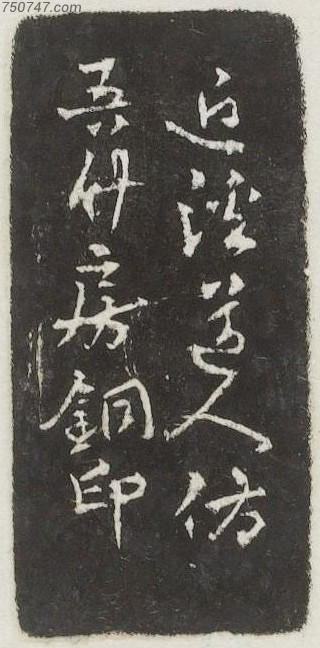 750747.com
近溪道人仿
吾竹房銅印